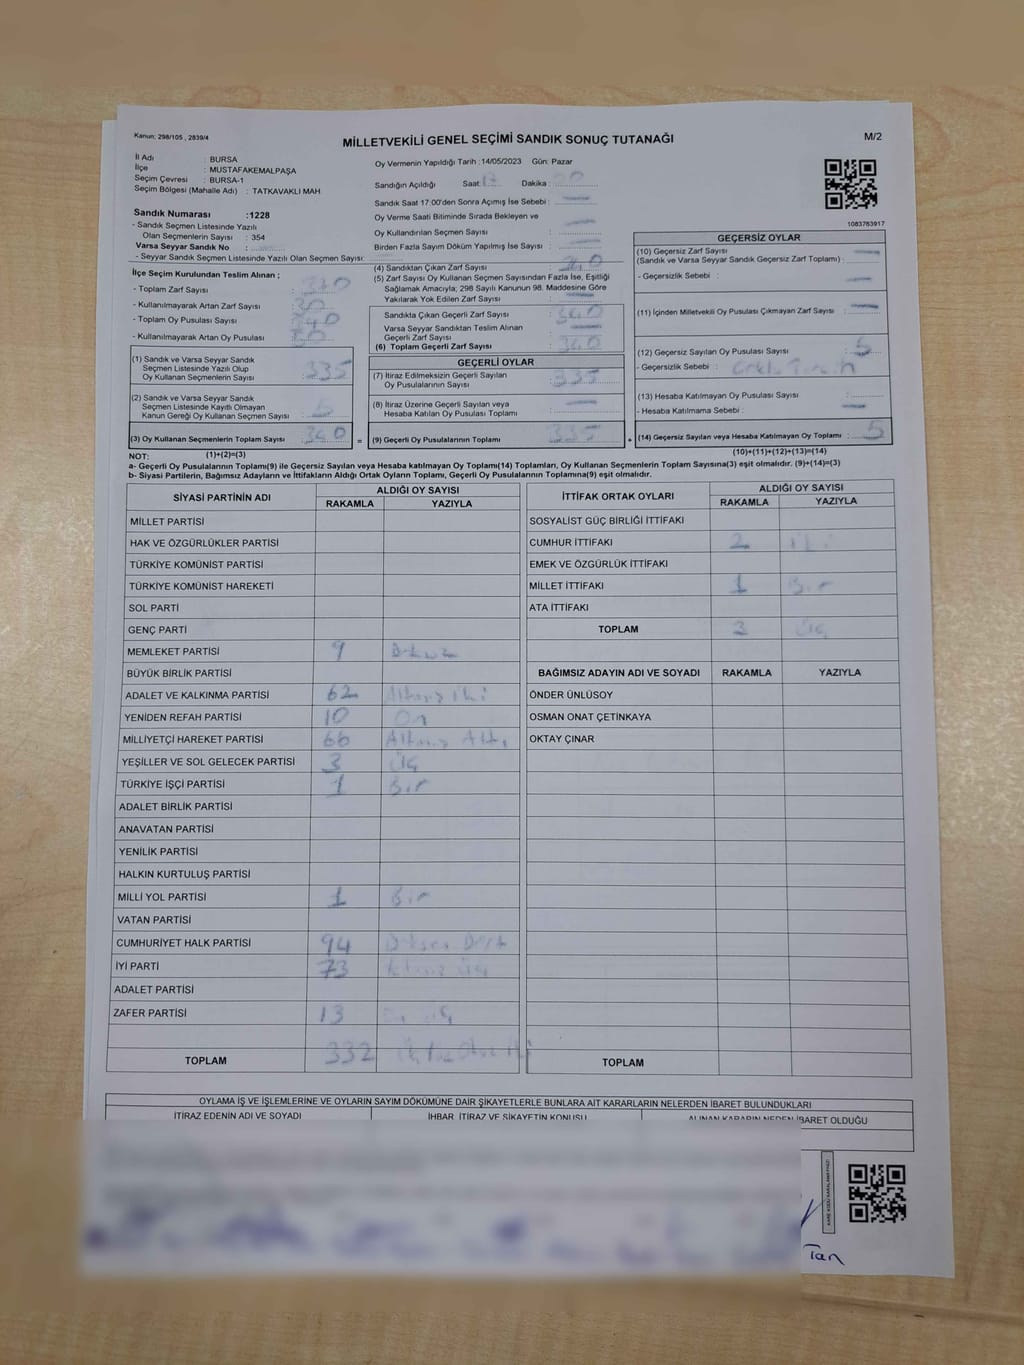 Kanun; 298/105 , 2839/4
MİLLETVEKİLİ GENEL SEÇİMİ SANDIK SONUÇ TUTANAĞI
M/2
İl Adı : BURSA
İlçe : MUSTAFAKEMALPAŞA
Seçim Çevresi : BURSA-1
Seçim Bölgesi (Mahalle Adı) : TATKAVAKLI MAH
Oy Vermenin Yapıldığı Tarih :14/05/2023 Gün: Pazar
Sandığın Açıldığı Saat: 17 Dakika :
Sandık Saat 17:00'den Sonra Açımış İse Sebebi : —
Oy Verme Saati Bitiminde Sırada Bekleyen ve
Oy Kullandırılan Seçmen Sayısı : —
Birden Fazla Sayım Döküm Yapılmış İse Sayısı : —
1083763917
Sandık Numarası :1228
- Sandık Seçmen Listesinde Yazılı
Olan Seçmenlerin Sayısı : 354
Varsa Seyyar Sandık No :
- Seyyar Sandık Seçmen Listesinde Yazılı Olan Seçmen Sayısı:
İlçe Seçim Kurulundan Teslim Alınan ;
- Toplam Zarf Sayısı :
- Kullanılmayarak Artan Zarf Sayısı :
- Toplam Oy Pusulası Sayısı :
- Kullanılmayarak Artan Oy Pusulası :
(1) Sandık ve Varsa Seyyar Sandık
Seçmen Listesinde Yazılı Olup
Oy Kullanan Seçmenlerin Sayısı : 335
(2) Sandık ve Varsa Seyyar Sandık
Seçmen Listesinde Kayıtlı Olmayan
Kanun Gereği Oy Kullanan Seçmen Sayısı : 5
(3) Oy Kullanan Seçmenlerin Toplam Sayısı : 340
(4) Sandıktan Çıkan Zarf Sayısı : 340
(5) Zarf Sayısı Oy Kullanan Seçmen Sayısından Fazla İse, Eşitliği
Sağlamak Amacıyla; 298 Sayılı Kanunun 98. Maddesine Göre
Yakılarak Yok Edilen Zarf Sayısı : —
Sandıkta Çıkan Geçerli Zarf Sayısı : 340
Varsa Seyyar Sandıktan Teslim Alınan
Geçerli Zarf Sayısı : —
(6) Toplam Geçerli Zarf Sayısı : 340
GEÇERLİ OYLAR
(7) İtiraz Edilmeksizin Geçerli Sayılan
Oy Pusulalarının Sayısı : 335
(8) İtiraz Üzerine Geçerli Sayılan veya
Hesaba Katılan Oy Pusulası Toplamı : —
= (9) Geçerli Oy Pusulalarının Toplamı : 335 +
GEÇERSİZ OYLAR
(10) Geçersiz Zarf Sayısı
(Sandık ve Varsa Seyyar Sandık Geçersiz Zarf Toplamı) : —
- Geçersizlik Sebebi : —
(11) İçinden Milletvekili Oy Pusulası Çıkmayan Zarf Sayısı : —
(12) Geçersiz Sayılan Oy Pusulası Sayısı : 5
- Geçersizlik Sebebi :
(13) Hesaba Katılmayan Oy Pusulası Sayısı :
- Hesaba Katılmama Sebebi : —
(14) Geçersiz Sayılan veya Hesaba Katılmayan Oy Toplamı : 5
NOT: (1)+(2)=(3) (10)+(11)+(12)+(13)=(14)
a- Geçerli Oy Pusulalarının Toplamı(9) ile Geçersiz Sayılan veya Hesaba katılmayan Oy Toplamı(14) Toplamları, Oy Kullanan Seçmenlerin Toplam Sayısına(3) eşit olmalıdır. (9)+(14)=(3)
b- Siyasi Partilerin, Bağımsız Adayların ve İttifakların Aldığı Ortak Oyların Toplamı, Geçerli Oy Pusulalarının Toplamına(9) eşit olmalıdır.
SİYASİ PARTİNİN ADI ALDIĞI OY SAYISI
RAKAMLA YAZIYLA
MİLLET PARTİSİ
HAK VE ÖZGÜRLÜKLER PARTİSİ
TÜRKİYE KOMÜNİST PARTİSİ
TÜRKİYE KOMÜNİST HAREKETİ
SOL PARTİ
GENÇ PARTİ
MEMLEKET PARTİSİ 9 Dokuz
BÜYÜK BİRLİK PARTİSİ
ADALET VE KALKINMA PARTİSİ 62 Altmış İki
YENİDEN REFAH PARTİSİ 10 On
MİLLİYETÇİ HAREKET PARTİSİ 66 Altmış Altı
YEŞİLLER VE SOL GELECEK PARTİSİ 3 Üç
TÜRKİYE İŞÇİ PARTİSİ 1 Bir
ADALET BİRLİK PARTİSİ
ANAVATAN PARTİSİ
YENİLİK PARTİSİ
HALKIN KURTULUŞ PARTİSİ
MİLLİ YOL PARTİSİ 1 Bir
VATAN PARTİSİ
CUMHURİYET HALK PARTİSİ 94 Doksan Dört
İYİ PARTİ 73 Yetmiş Üç
ADALET PARTİSİ
ZAFER PARTİSİ 13 On Üç
TOPLAM 332 Üç Yüz Otuz İki
İTTİFAK ORTAK OYLARI ALDIĞI OY SAYISI
RAKAMLA YAZIYLA
SOSYALİST GÜÇ BİRLİĞİ İTTİFAKI
CUMHUR İTTİFAKI 2 İki
EMEK VE ÖZGÜRLÜK İTTİFAKI
MİLLET İTTİFAKI 1 Bir
ATA İTTİFAKI
TOPLAM 3 Üç
BAĞIMSIZ ADAYIN ADI VE SOYADI RAKAMLA YAZIYLA
ÖNDER ÜNLÜSOY
OSMAN ONAT ÇETİNKAYA
OKTAY ÇINAR
TOPLAM
OYLAMA İŞ VE İŞLEMLERİNE VE OYLARIN SAYIM DÖKÜMÜNE DAİR ŞİKAYETLERLE BUNLARA AİT KARARLARIN NELERDEN İBARET BULUNDUKLARI
İTİRAZ EDENİN ADI VE SOYADI İHBAR, İTİRAZ VE ŞİKAYETİN KONUSU ALINAN KARARIN NEDEN İBARET OLDUĞU
Tan